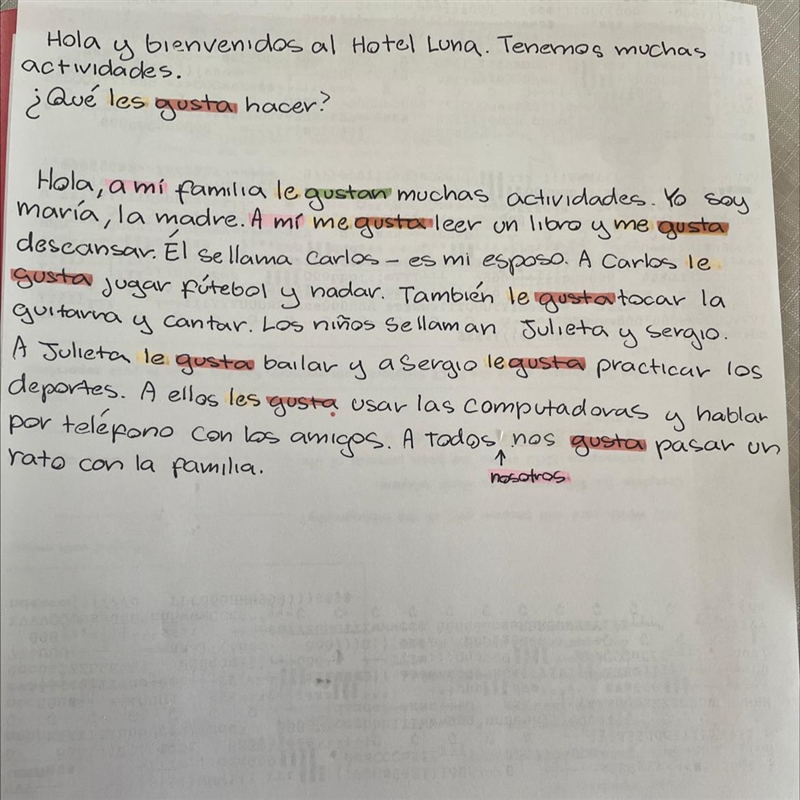 Hola y bienvenidos al Hotel Luna. Tenemos muchas
actividades.
¿Qué les gusta hacer?
Hola, a mi familia le gustan muchas actividades. Yo soy
maría, la madre. A mí me gusta leer un libro y me gusta
descansar. Él se llama Carlos - es mi esposo. A Carlos le
gusta jugar fútebol y nadar. También le gusta tocar la
guitarra y cantar. Los niños se llaman Julieta y Sergio.
A Julieta le gusta bailar y a Sergio le gusta practicar los
deportes. A ellos les gusta usar las computadoras y hablar
por teléfono con los amigos. A todos nos gusta pasar un
↑
nosotros
rato con la familia.